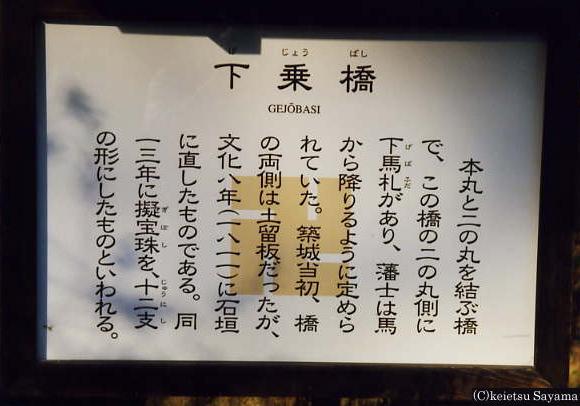 下乗橋
げ じょう ばし
GEJŌBASI
本丸と二の丸を結ぶ橋
で、この橋の二の丸側に
下馬札があり、藩士は馬
げば ふだ
から降りるように定めら
れていた。築城当初、橋
の両側は土留板だったが、
文化八年(一八一一)に石垣
に直したものである。同
一三年に擬宝珠を、十二支
ぎぼし じゅうにし
の形にしたものといわれる。
(C)keietsu Sayama